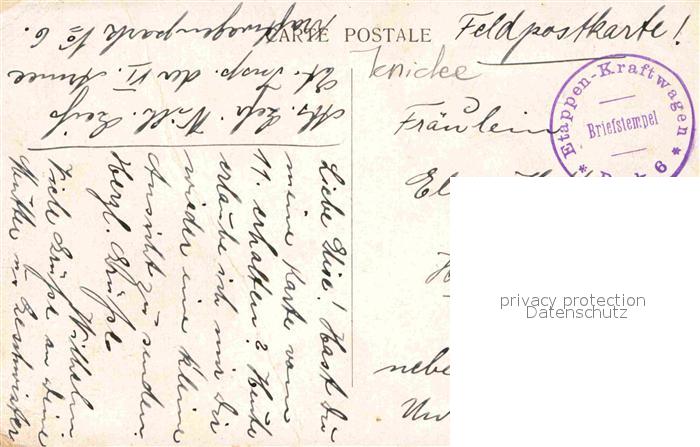 CARTE POSTALE
Feldpostkarte!
Fräulein
neben
Etappen-Kraftwagen
Briefstempel
* Park 6 *
privacy protection
Datenschutz
Et. Insp. der VI. Armee
Kraftwagenpark No 6.
Liebe Elise! Hast Du
meine Karte vom
11. erhalten? Heute
erlaube ich mir Dir
wieder eine kleine
Ansicht zu senden.
Herzl. Grüße
Wilhelm
Viele Grüße an Deine
Mutter u. Geschwister